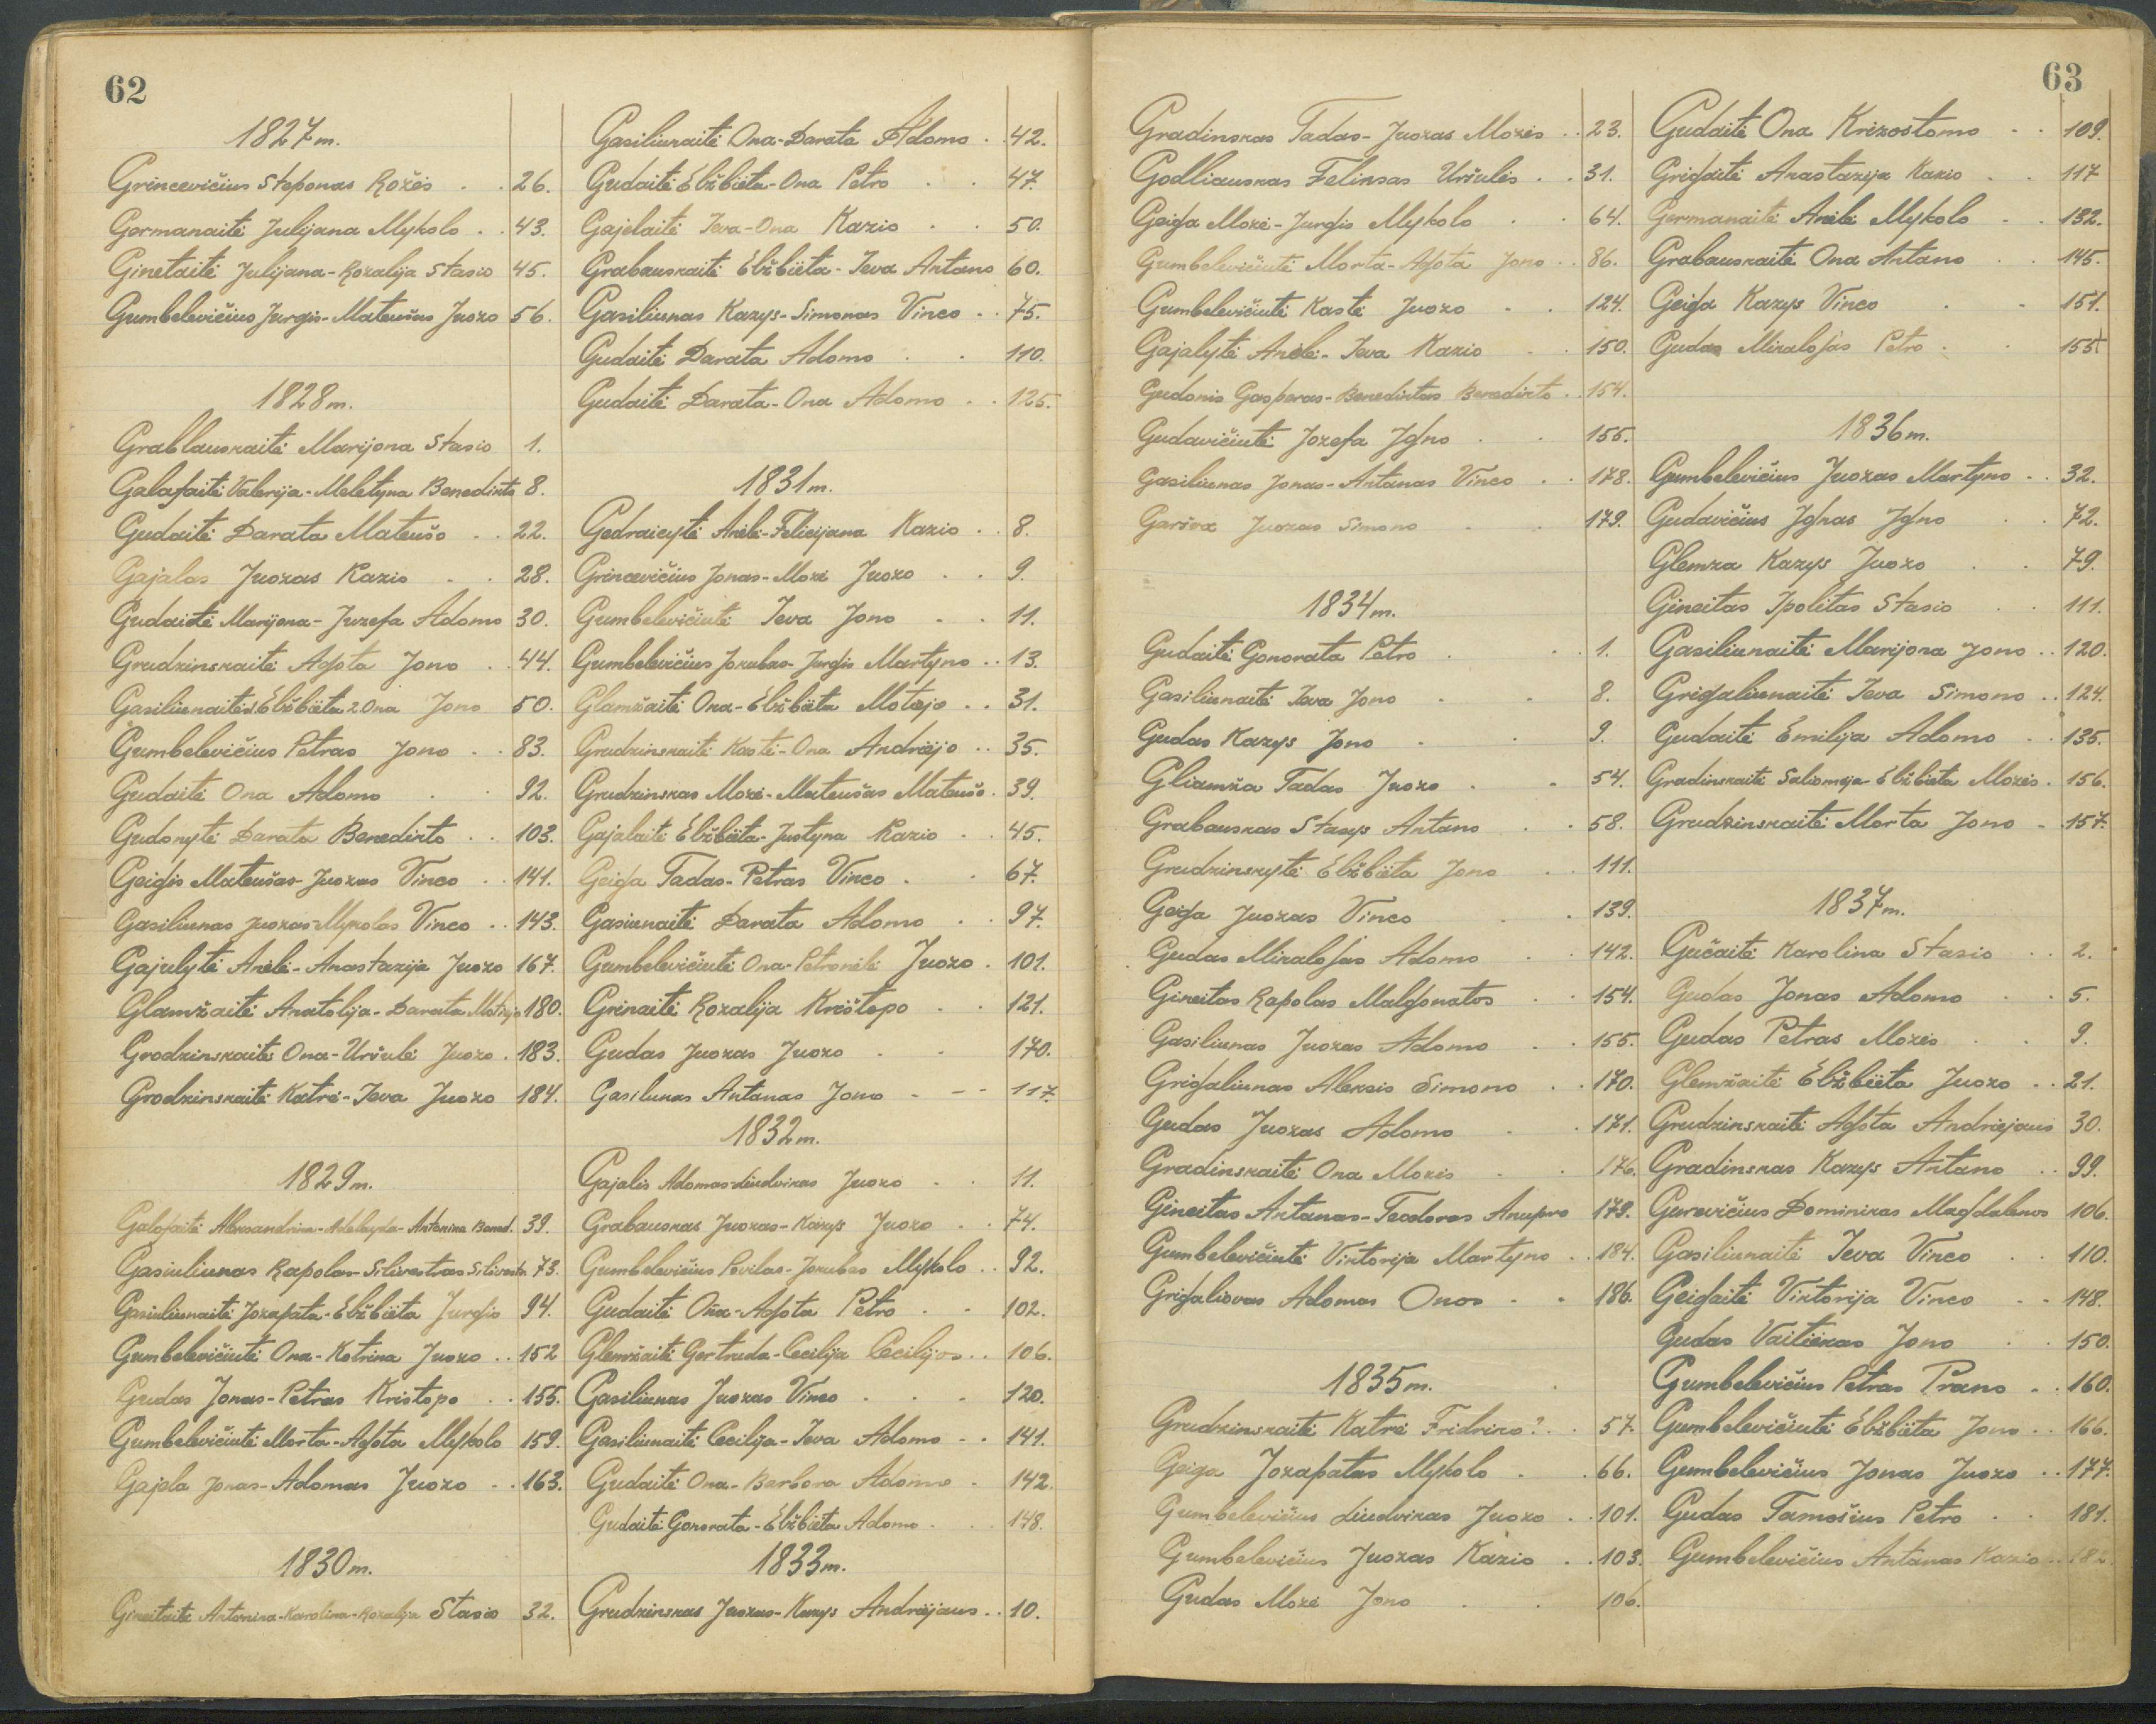 62
1827 m.
Grincevičius Steponas Rožės . . 26.
Germanaitė Julijana Mykolo . . 43.
Ginetaitė Julijana-Rozalija Stasio 45.
Gumbelevičius Jurgis-Mateušas Juozo 56.
1828 m.
Grablauskaitė Marijona Stasio 1.
Galafaitė Valerija-Meletyna Benedikto 8.
Gudaitė Darata Mateušo . . 22.
Gajalas Juozas Kazio . . 28.
Gudaitė Marijona-Juzefa Adomo 30.
Grudzinskaitė Agota Jono . . 44.
Gasiliunaitės Elžbieta 2 Ona Jono 50.
Gumbelevičius Petras Jono . . 83.
Gudaitė Ona Adomo . . 92.
Gudonytė Darata Benedikto . . 103.
Geigis Mateušas-Juozas Vinco . . 141.
Gasiliunas Juozas-Mykolas Vinco . . 143.
Gajulytė Anelė-Anastazija Juozo 167.
Glamžaitė Anatolija-Darata Motiejo 180.
Grodzinskaitė Ona-Uršulė Juozo . 183.
Grodzinskaitė Katrė-Ieva Juozo 184.
1829 m.
Galofaitė Aleksandrina-Adeleyda-Antonina Bened. 39.
Gasiuliunas Rapolas-Silvestras Silvestr. 73.
Gasiuliunaitė Jozapata-Elžbieta Jurgio 94.
Gumbelevičiutė Ona-Kotrina Juozo . . 152
Gudas Jonas-Petras Kristopo . . 155.
Gumbelevičiutė Morta-Agota Mykolo 159.
Gajela Jonas-Adomas Juozo . . 163.
1830 m.
Gineitaitė Antonina-Karolina-Rozalija Stasio 32.
Gasiliunaitė Ona-Darata Adomo . . 42.
Gudaitė Elžbieta-Ona Petro . . 47.
Gajelaitė Ieva-Ona Kazio . . 50.
Grabauskaitė Elžbieta-Ieva Antano 60.
Gasiliunas Kazys-Simonas Vinco . . 75.
Gudaitė Darata Adomo . . 110.
Gudaitė Darata-Ona Adomo . . 125.
1831 m.
Gedraicytė Anelė-Felicijana Kazio . . 8.
Grincevičius Jonas-Mozė Juozo . . 9.
Gumbelevičiutė Ieva Jono . . 11.
Gumbelevičius Jokubas-Jurgis Martyno . . 13.
Glamžaitė Ona-Elžbieta Motiejo . . 31.
Grudzinskaitė Kastė-Ona Andriejo . . 35.
Grudzinskas Mozė-Mateušas Mateušo . 39.
Gajalaitė Elžbieta-Justyna Kazio . . 45.
Geiga Tadas-Petras Vinco . . 67.
Gasiunaitė Darata Adomo . . 97.
Gumbelevičiutė Ona-Petronelė Juozo . 101.
Grinaitė Rozalija Krištopo . . 121.
Gudas Juozas Juozo . . 170.
Gasilunas Antanas Jono - - 117.
1832 m.
Gajalis Adomas-Liudvikas Juozo . . 11.
Grabauskas Juozas-Kazys Juozo . . 74.
Gumbelevičius Povilas-Jokubas Mykolo . . 92.
Gudaitė Ona-Agota Petro . . 102.
Glemžaitė Gertruda-Cecilija Cecilijos . . 106.
Gasiliunas Juozas Vinco . . . 120.
Gasiliunaitė Cecilija-Ieva Adomo . . 141.
Gudaitė Ona-Barbora Adomo . 142.
Gudaitė Gonorata-Elžbieta Adomo . . 148.
1833 m.
Grudzinskas Juozas-Kazys Andriejaus . . 10.
63
Gradinskas Tadas-Juozas Mozės . . 23.
Godliauskas Feliksas Uršulės . . 31.
Geiga Mozė-Jurgis Mykolo . . 64.
Gumbelevičiutė Morta-Agota Jono . . 86.
Gumbelevičiutė Kastė Juozo . . 124.
Gajalytė Anelė-Ieva Kazio . . 150.
Gudonis Gasparas-Benediktas Benedikto . . 154.
Gudavičiutė Jozefa Igno . . 155.
Gasiliunas Jonas-Antanas Vinco . . 178.
Garšva Juozas Simono . . 179.
1834 m.
Gudaitė Gonorata Petro . . . 1.
Gasiliunaitė Ieva Jono . . 8.
Gudas Kazys Jono . . 9.
Gliamža Tadas Juozo . . 54.
Grabauskas Stasys Antano . . 58.
Grudzinskytė Elžbieta Jono . . 111.
Geiga Juozas Vinco . . 139.
Gudas Mikalojas Adomo . . 142.
Gineitas Rapolas Malgonatos . . 154.
Gasiliunas Juozas Adomo . . 155.
Grigaliunas Aleksis Simono . . 170.
Gudas Juozas Adomo . . 171.
Gradinskaitė Ona Mozės . . 176.
Gineitas Antanas-Teodoras Anupro 179.
Gumbelevičiutė Viktorija Martyno . . 184.
Grigaliovas Adomas Onos . . 186.
1835 m.
Grudzinskaitė Katrė Fridriko? . . 57.
Geiga Jozapatas Mykolo . . 66.
Gumbelevičius Liudvikas Juozo . . 101.
Gumbelevičius Juozas Kazio . . 103.
Gudas Mozė Jono . . 106.
Gudaitė Ona Krizostomo . . 109.
Grigaitė Anastazija Kazio . . 117
Germanaitė Anelė Mykolo . . 132.
Grabauskaitė Ona Antano . . 145.
Geiga Kazys Vinco . . 151.
Gudas Mikalojas Petro . . 155
1836 m.
Gumbelevičius Juozas Martyno . . 32.
Gudavičius Ignas Igno . . 72.
Glemza Kazys Juozo . . 79.
Gineitas Ipolitas Stasio . . 111.
Gasiliunaitė Marijona Jono . . 120.
Grigaliunaitė Ieva Simono . . 124.
Gudaitė Emilija Adomo . . 135.
Gradinskaitė Saliomeja-Elžbieta Mozės . 156.
Grudzinskaitė Morta Jono . 157.
1837 m.
Gučaitė Karolina Stasio . . 2.
Gudas Jonas Adomo . . 5.
Gudas Petras Mozės . . 9.
Glemžaitė Elžbieta Juozo . . 21.
Grudzinskaitė Agota Andriejaus 30.
Gradinskas Kazys Antano . . 99.
Gurevičius Dominikas Magdalenos 106.
Gasiliunaitė Ieva Vinco . . 110.
Geigaitė Viktorija Vinco . . 148.
Gudas Vaitiekas Jono . . 150.
Gumbelevičius Petras Prano . . 160.
Gumbelevičiutė Elžbieta Jono . . 166.
Gumbelevičius Jonas Juozo . . 177.
Gudas Tamošius Petro . . 181.
Gumbelevičius Antanas Kazio . . 182.